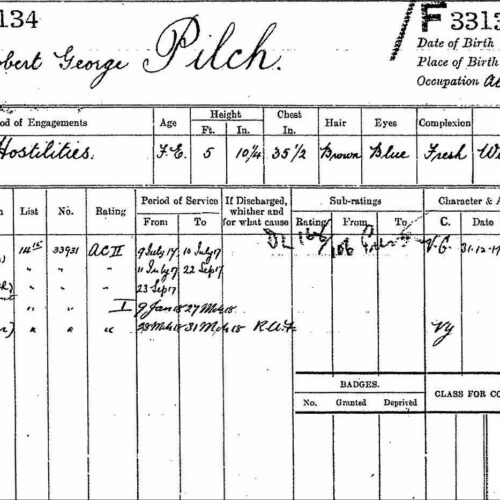 134
F 3313
Date of Birth
obert George Pilch.
Place of Birth
Occupation
od of Engagements
Age
Height
Ft.
In.
Chest
In.
Hair
Eyes
Complexion
Hostilities.
F.E.
5
10¼
35½
Brown
Blue
Fresh
List
No.
Rating
Period of Service
From
To
If Discharged,
whither and
for what cause
Sub-ratings
Rating
From
To
Character & A
C.
Date
33931
AC II
9 July 17
10 July 17
V.G.
31.12.19
" " "
11 July 17
22 Sep 17
23 Sep 17
" " I
9 Jan 18
27 Mch 18
" " "
28 Mch 18
31 Mch 18
R.A.F.
BADGES.
No.
Granted
Deprived
CLASS FOR CO